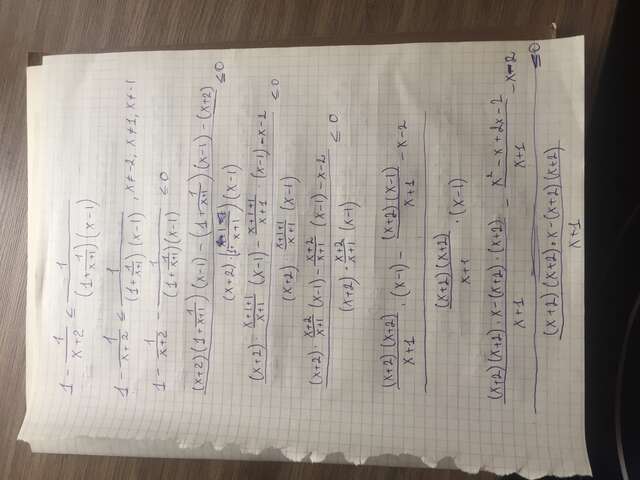 1 - 1/(x+2) ≤ 1/((1+1/(x+1))(x-1))
1 - 1/(x+2) ≤ 1/((1+1/(x+1))(x-1)), x≠-2, x≠1, x≠-1
1 - 1/(x+2) - 1/((1+1/(x+1))(x-1)) ≤ 0
((x+2)(1+1/(x+1))(x-1) - (1+1/(x+1))(x-1) - (x+2))/((x+2)·(1+1/(x+1))(x-1)) ≤ 0
((x+2)·(x+1+1)/(x+1) (x-1) - (x+1+1)/(x+1)·(x-1) - x-2)/((x+2) (x+1+1)/(x+1) (x-1)) ≤ 0
((x+2)·(x+2)/(x+1) (x-1) - (x+2)/(x+1) (x-1) - x-2)/((x+2)·(x+2)/(x+1) (x-1)) ≤ 0
((x+2)(x+2)/(x+1)·(x-1) - (x+2)(x-1)/(x+1) - x-2)/((x+2)(x+2)/(x+1)·(x-1))
(((x+2)(x+2)·x-(x+2)·(x+2))/(x+1) - (x²-x+2x-2)/(x+1) - x-2)/(((x+2)(x+2)·x-(x+2)(x+2))/(x+1)) ≤ 0